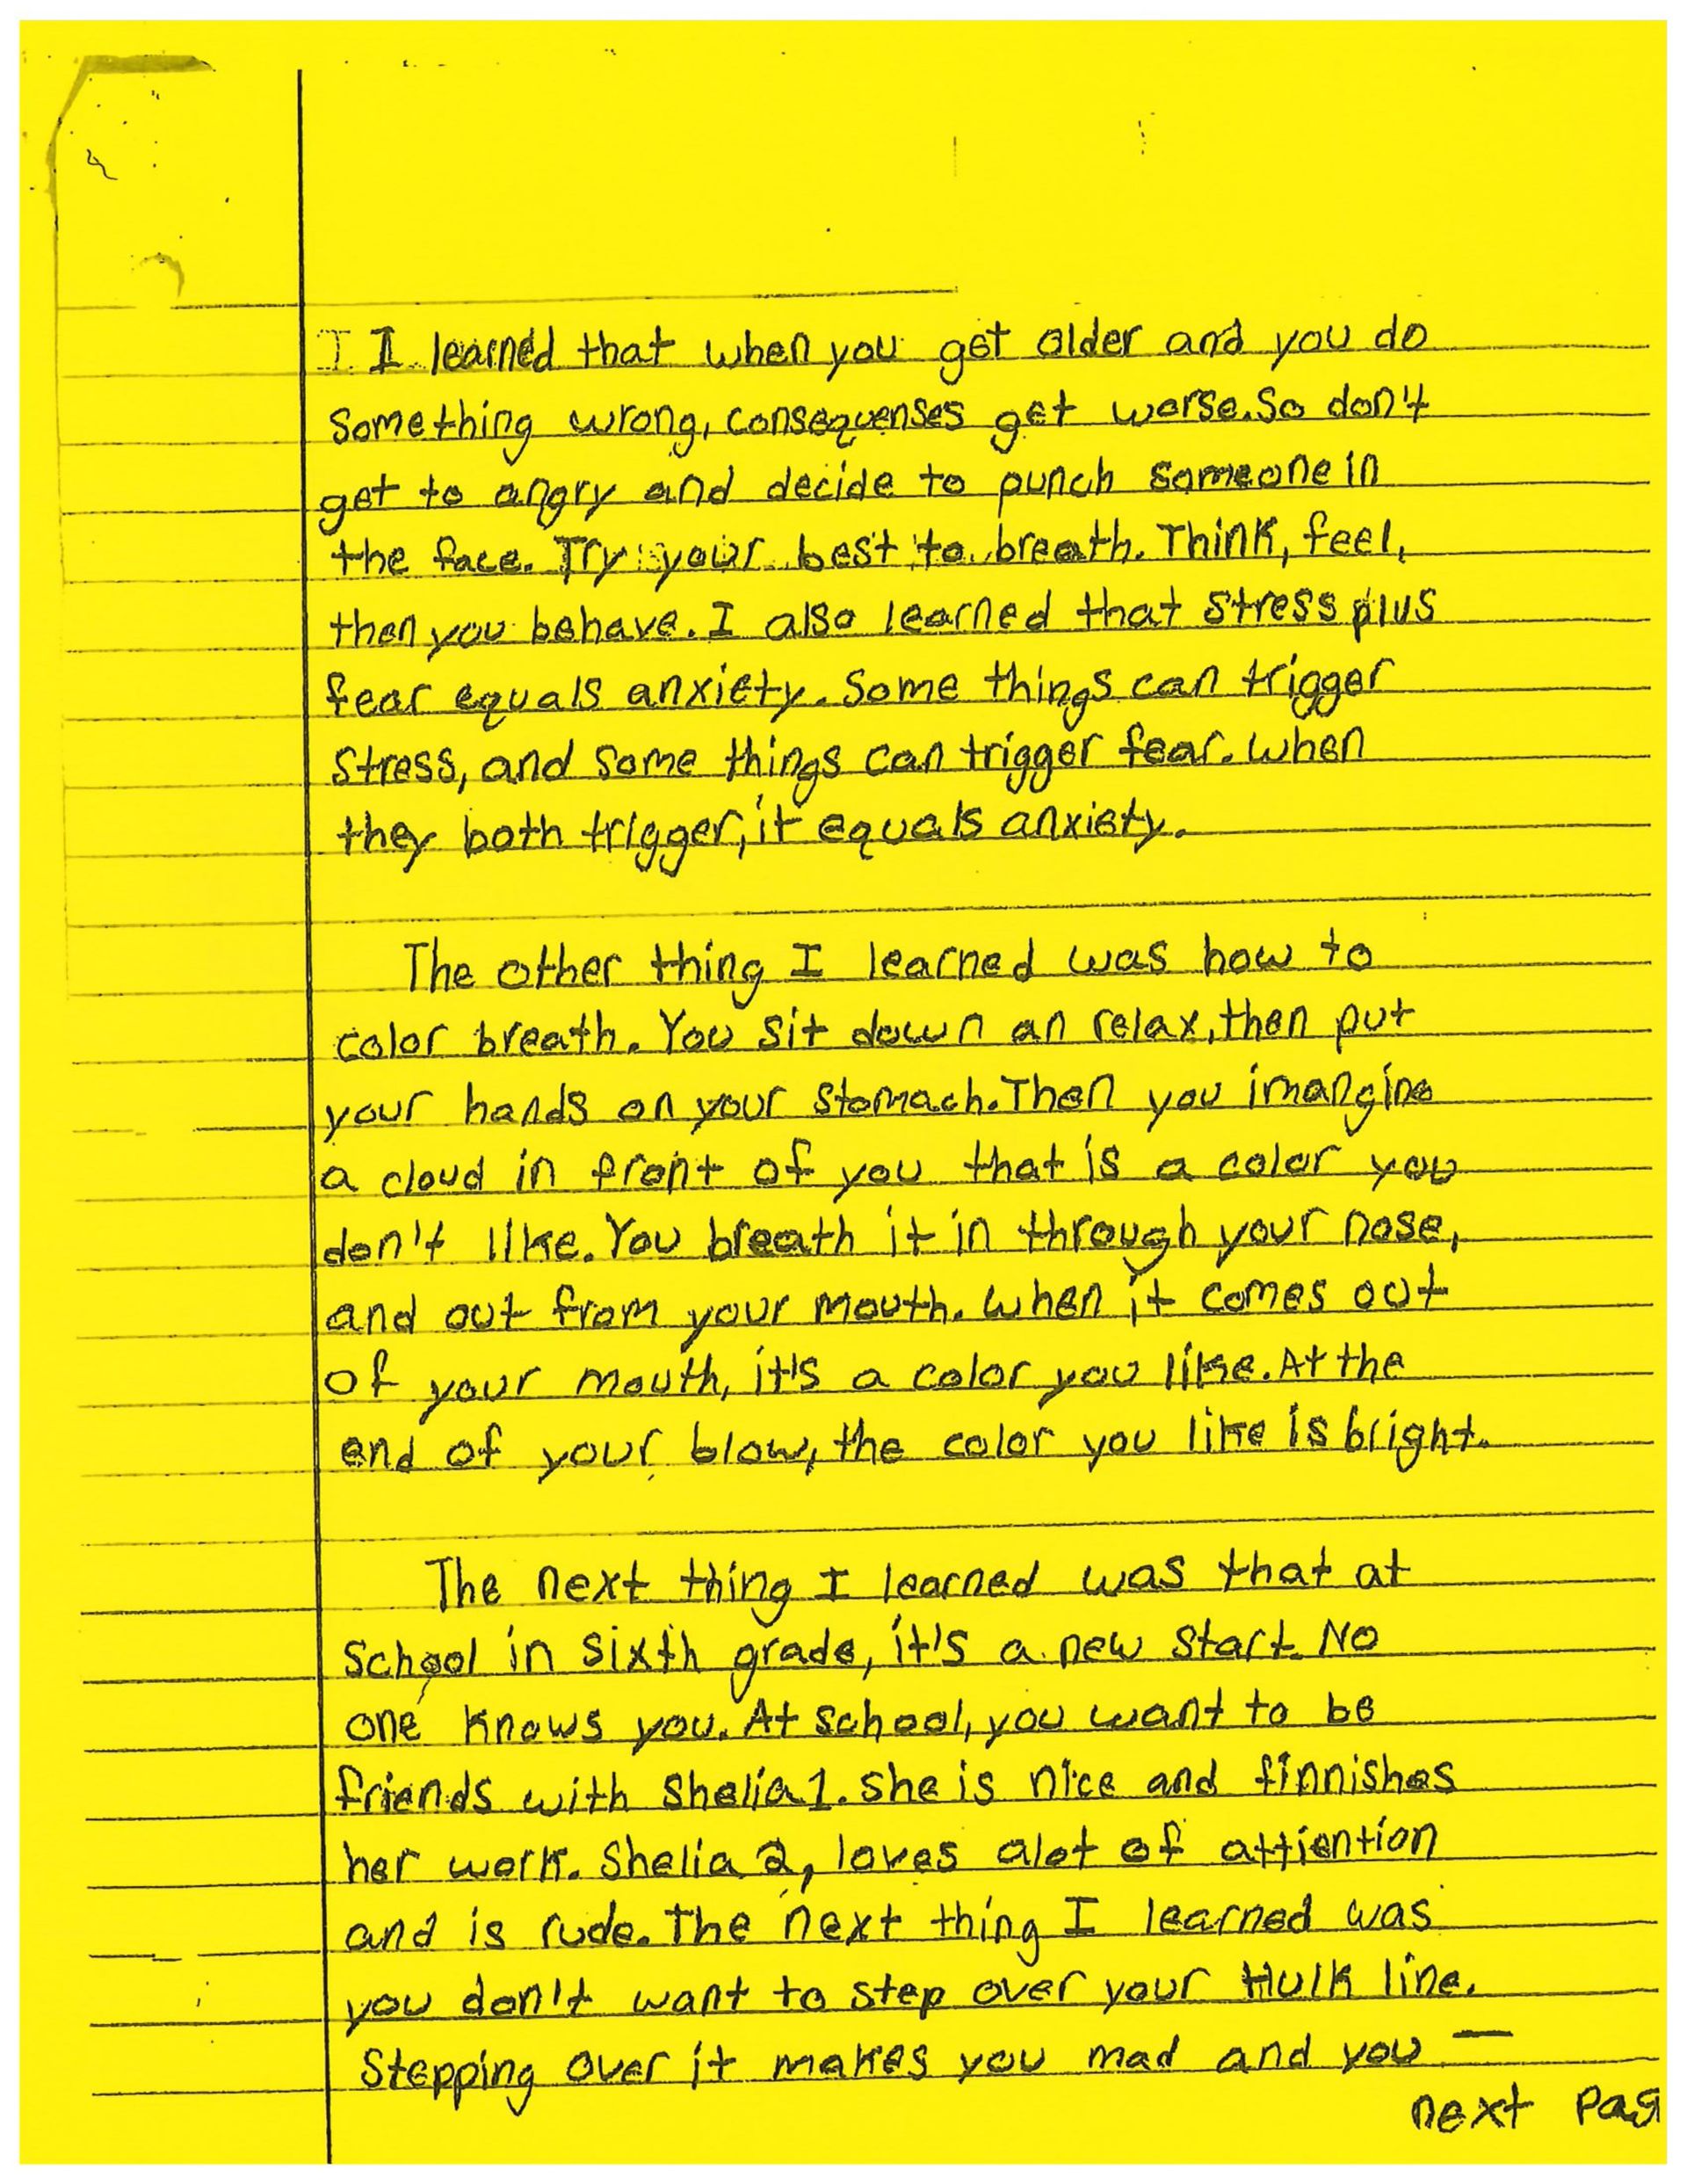 I I learned that when you get older and you do
something wrong, consequenses get werse. So don't
get to angry and decide to punch someone in
the face. Try your best to breath. Think, feel,
then you behave. I also learned that stress plus
fear equals anxiety. Some things can trigger
stress, and some things can trigger fear. When
they both trigger, it equals anxiety.
The other thing I learned was how to
color breath. You sit down an relax, then put
your hands on your stomach. Then you imangine
a cloud in front of you that is a color you
don't like. You breath it in through your nose,
and out from your mouth. When it comes out
of your mouth, it's a color you like. At the
end of your blow, the color you like is bright.
The next thing I learned was that at
school in sixth grade, it's a new start. No
one knows you. At school, you want to be
friends with Shelia 1. She is nice and finnishes
her work. Shelia 2, loves alot of attiention
and is rude. The next thing I learned was
you don't want to step over your Hulk line.
Stepping over it makes you mad and you —
next Pag